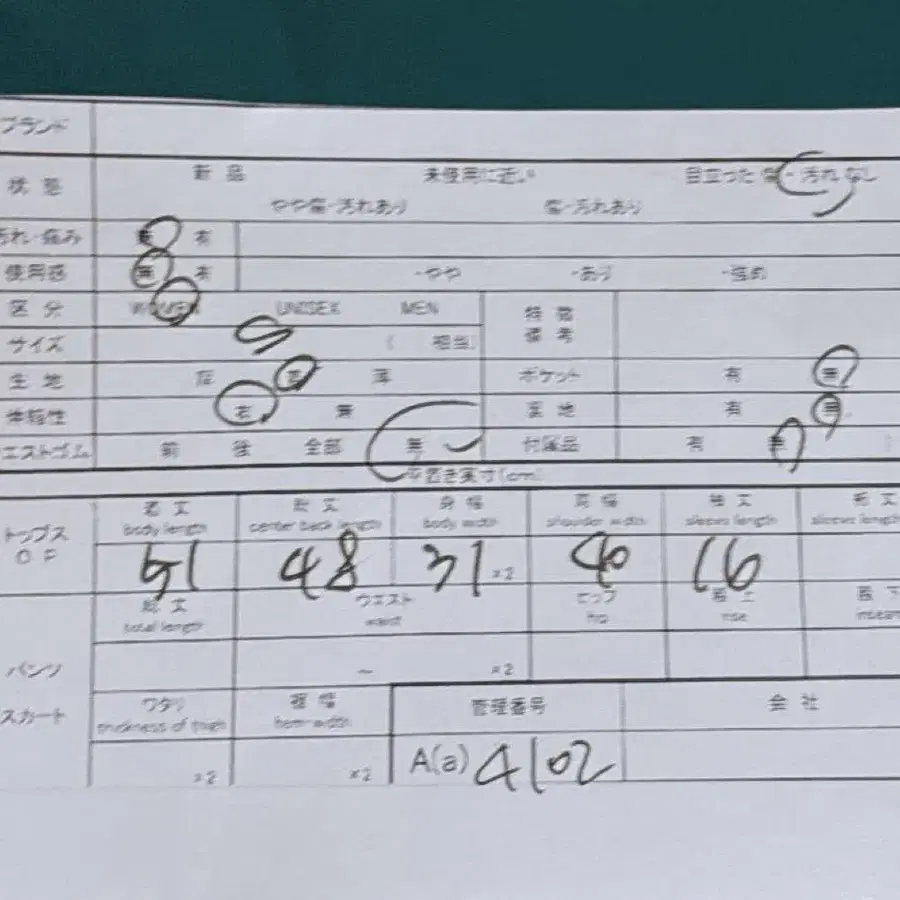 ブランド
状態 新品 未使用に近い 目立った傷・汚れなし
やや傷・汚れあり 傷・汚れあり
汚れ・痛み 無 有
使用感 無 有 ・やや ・あり ・強め
区分 WOMEN UNISEX MEN 特徴
備考
サイズ S ( 相当
生地 厚 薄 ポケット 有 無
伸縮性 有 無 裏地 有 無
エストゴム 前 後 全部 無 付属品 有 無 (
平置き実寸(cm)
トップス
OF
着丈 総丈 身幅 肩幅 袖丈 裄丈
body length center back length body width shoulder width sleeve length sleeve length
51 48 31 ×2 40 16
総丈 ウエスト ヒップ 股上 股下
total length waist hip rise inseam
パンツ ~ ×2
スカート ワタリ 裾幅 管理番号 会社
thickness of thigh hem width
×2 ×2 A(a) 4102